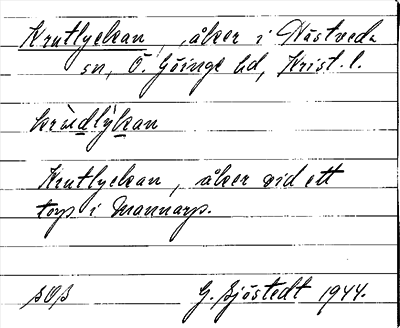 Krutlyckan, åker i Hästveda
sn, Ö. Göinge hd, Krist. l.
krùdlỳkan
Krutlyckan, åker vid ett
torp i Mannarp.
G. Sjöstedt 1944.